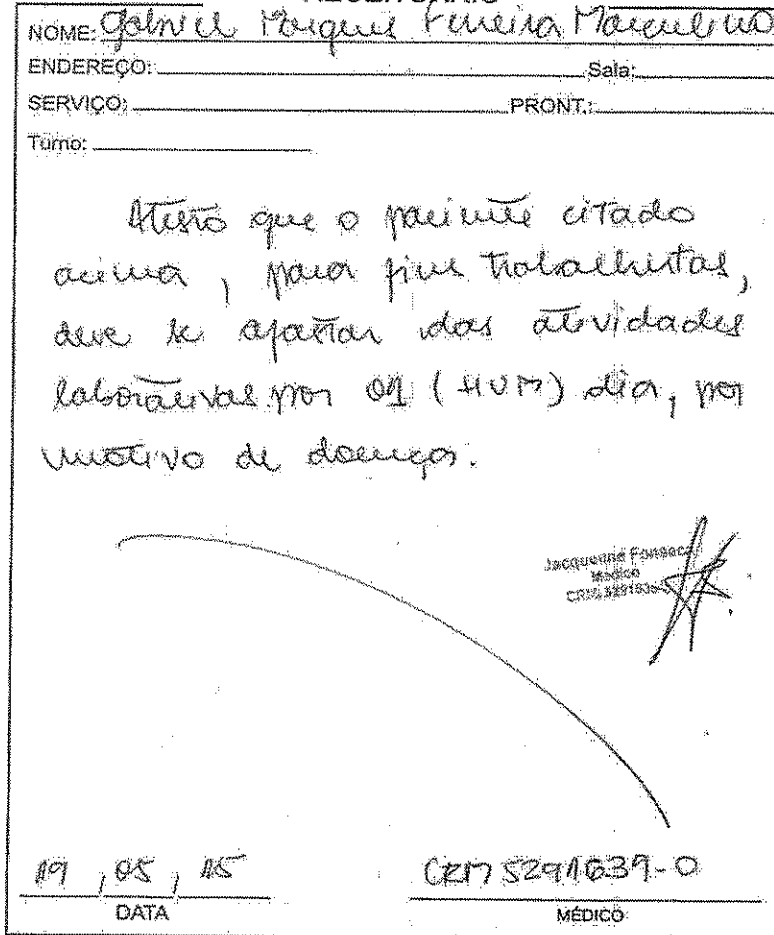 RECEITUÁRIO
NOME: Gabriel Marques Ferreira Marcelino
ENDEREÇO: Sala:
SERVIÇO: PRONT.:
Turno:
Atesto que o paciente citado
acima, para fins trabalhistas,
deve se afastar das atividades
laborativas por 01 (HUM) dia, por
motivo de doença.
Jacqueline Fonseca
Médico
CRM
19, 05, 15
CRM 5291639-0
DATA
MÉDICO